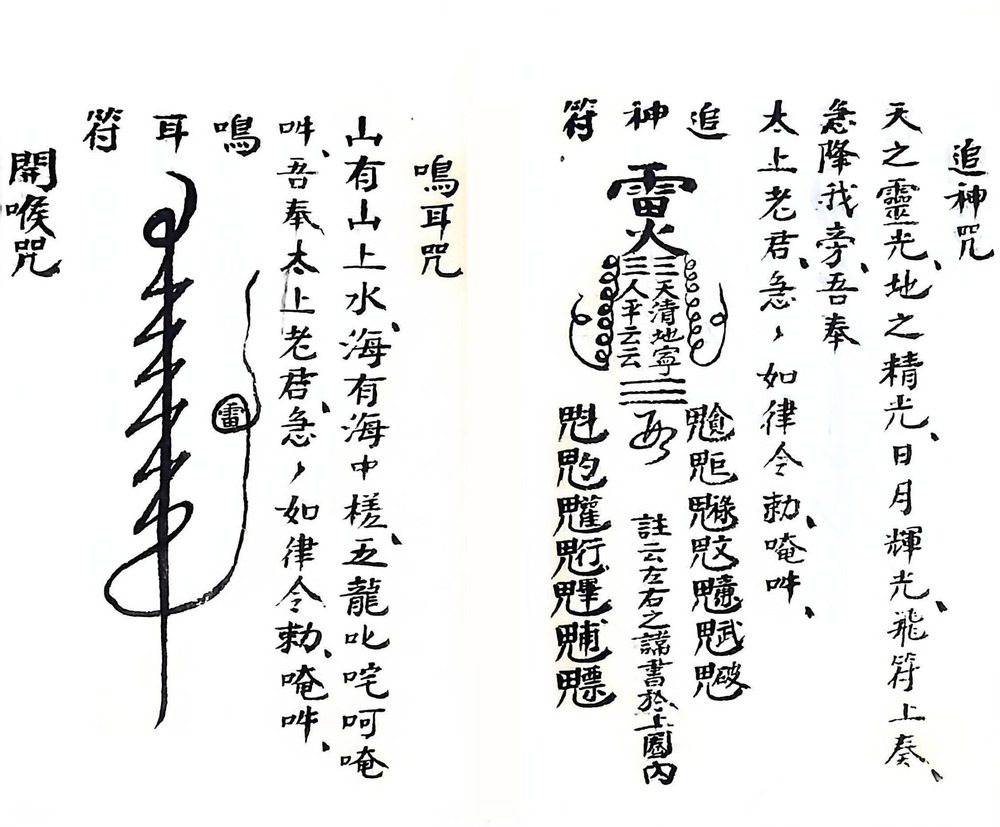 追神咒
天之靈光、地之精光、日月輝光、飛符上奏、
急降我旁、吾奉
太上老君、急々如律令勅、唵吽、
追神符
雷火
三天清地寧
三人平云云
註云左右之諱書於上圈內
鳴耳咒
山有山上水、海有海中槎、五龍叱咤呵唵
吽、吾奉太上老君、急々如律令勅、唵吽、
鳴耳符
雷
開喉咒